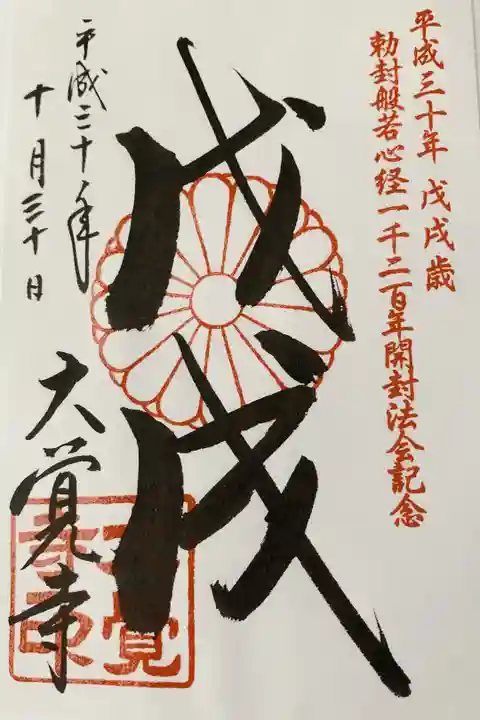 平成三十年 戊戌歳
勅封般若心経一千二百年開封法会記念
戊戌
平成三十年
十月三十日
大覚寺